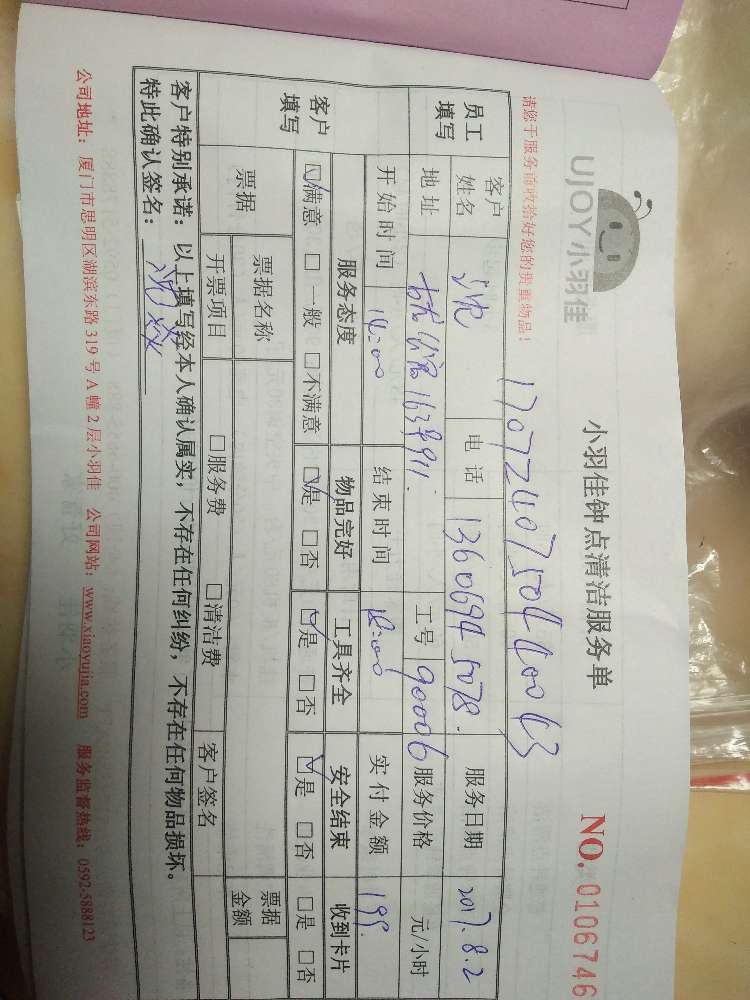 UJOY小羽佳
小羽佳钟点清洁服务单
NO. 0106746
请您于服务前收拾好您的贵重物品！
1707240750440063
员工填写 客户姓名 沈 电话 13606945078 服务日期 2017.8.2
地址 163号911 工号 90006 服务价格 元/小时
开始时间 14:00 结束时间 18:00 实付金额 199
客户填写 服务态度 物品完好 工具齐全 安全结束 收到卡片
☑满意 □一般 □不满意 ☑是 □否 ☑是 □否 ☑是 □否 □是 □否
票据 票据名称 票据金额
开票项目 □服务费 □清洁费 客户签名
客户特别承诺：以上填写经本人确认属实，不存在任何纠纷，不存在任何物品损坏。
特此确认签名：
公司地址：厦门市思明区湖滨东路319号A幢2层小羽佳 公司网站：www.xiaoyujia.com 服务监督热线：0592-5888123